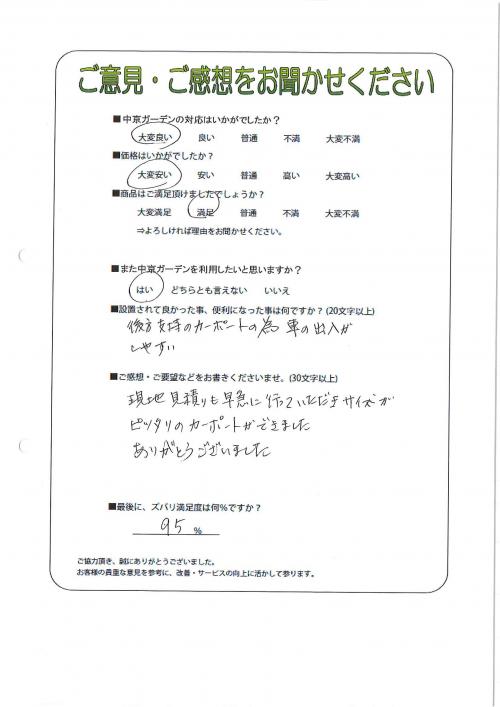 ご意見・ご感想をお聞かせください
■中京ガーデンの対応はいかがでしたか？
大変良い 良い 普通 不満 大変不満
■価格はいかがでしたか？
大変安い 安い 普通 高い 大変高い
■商品はご満足頂けましたでしょうか？
大変満足 満足 普通 不満 大変不満
⇒よろしければ理由をお聞かせください。
■また中京ガーデンを利用したいと思いますか？
はい どちらとも言えない いいえ
■設置されて良かった事、便利になった事は何ですか？（20文字以上）
後方支持のカーポートの為 車の出入が
しやすい
■ご感想・ご要望などをお書きくださいませ。（30文字以上）
現地見積りも早急に行っていただきサイズが
ピッタリのカーポートができました
ありがとうございました
■最後に、ズバリ満足度は何％ですか？
95 ％
ご協力頂き、誠にありがとうございました。
お客様の貴重な意見を参考に、改善・サービスの向上に活かして参ります。